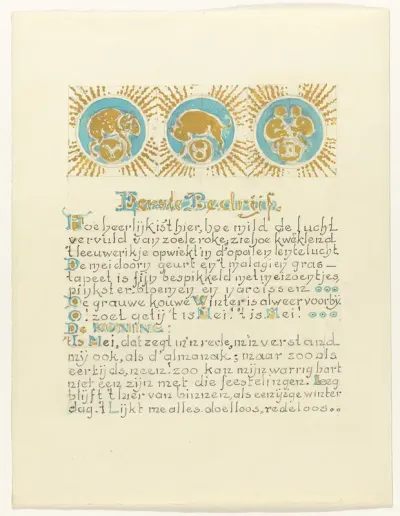 Eerste Bedrijf.
Hoe heerlijk ist hier, hoe mild de lucht
vervuld van zoele roke; zie hoe kwêklend
't leeuwerikje opwiekt in d'opalen lentelucht
De meidoorn geurt en 't malagien gras-
tapeet is fijn bespikkeld met meizoentjes
pinksterbloemen en narcissen
De grauwe kouwe Winter is alweer voorbij
O! zoet getij 't is Mei! 't is Mei!
De KONING:
Is Mei, dat zegt m'n rede, m'n verstand
mij ook, als d'almanak; maar zoo als
eertijds, neen! zoo kan mijn warrig hart
niet één zijn met die feestelingen. Leeg
blijft 't hier van binnen, als een ijzge winter
dag. 't Lijkt me alles doelloos, redeloos..